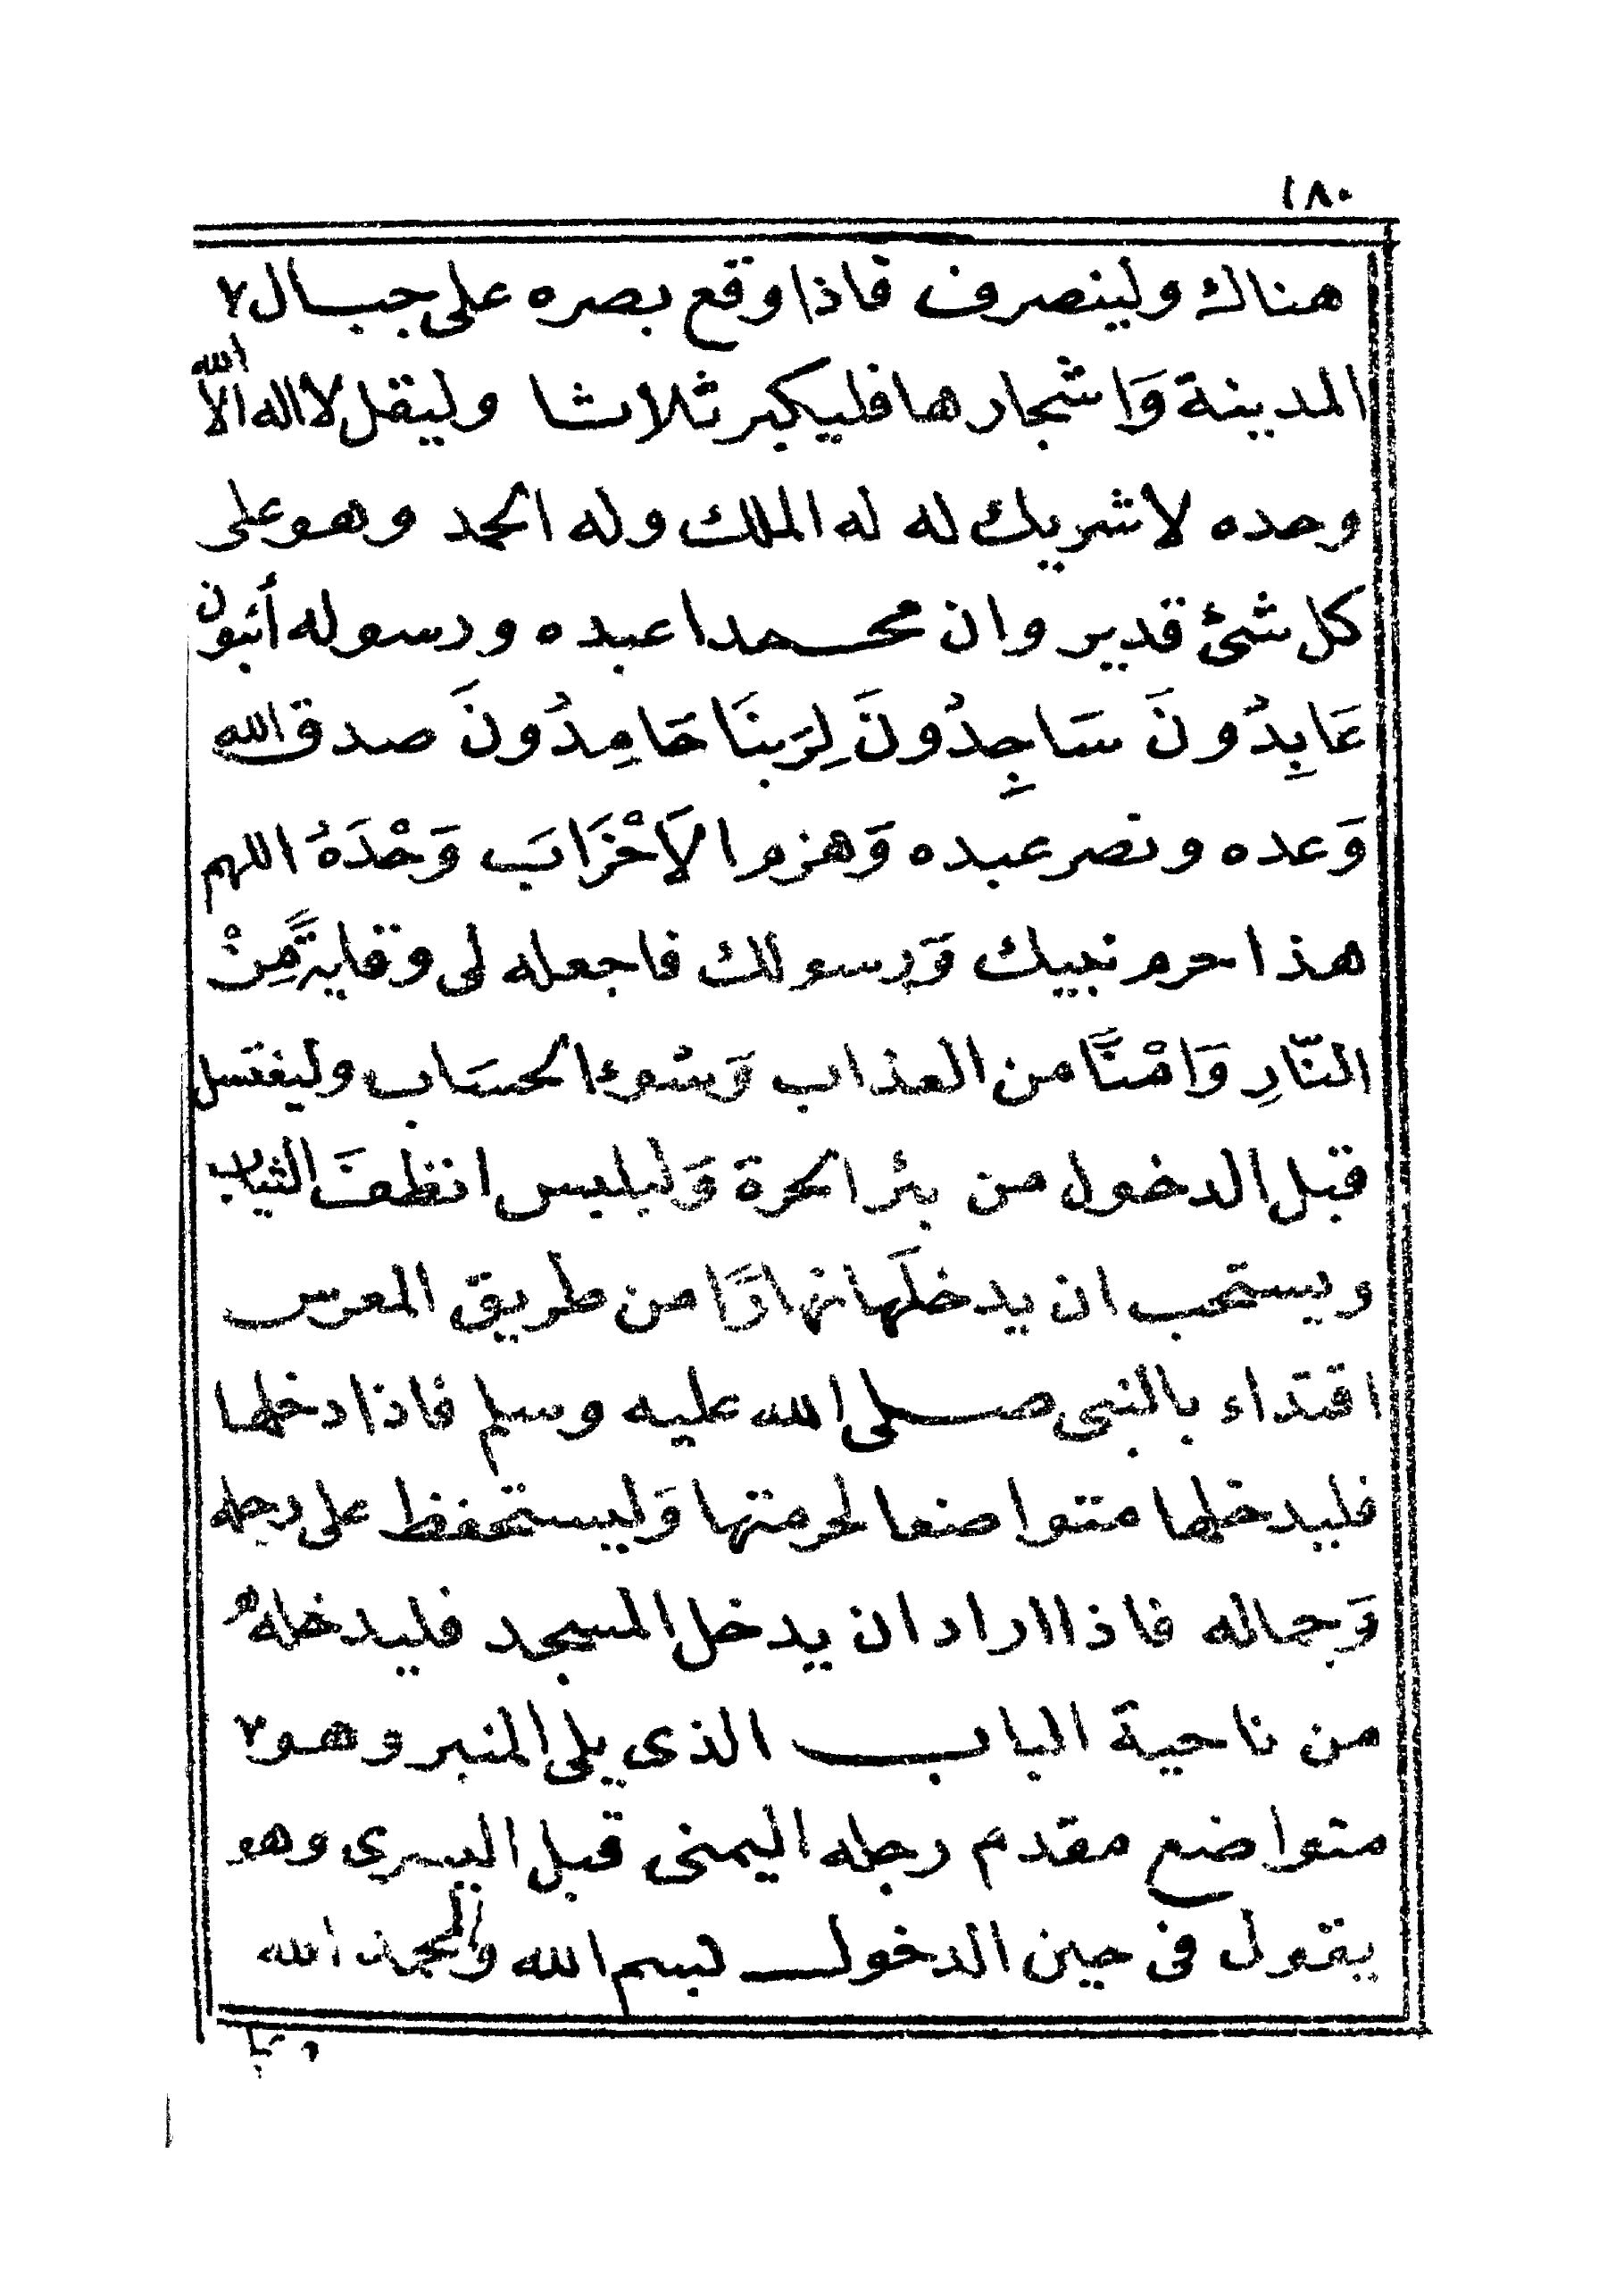 ١٨٠
هناك ولينصرف فاذا وقع بصره على جبال
المدينة وَاشجارها فليكبر ثلاثا وليقل لا اله الاّ الله
وحده لا شريك له له الملك وله الحمد وهو على
كل شئ قدير وان محمدا عبده ورسوله أئبون
عَابِدُونَ سَاجِدُونَ لِرَبنَا حَامِدُونَ صدق الله
وَعده ونصر عبده وَهزم الاَحْزَابَ وَحْدَهُ اللهم
هذا حرم نبيك وَرسولك فاجعله لى وقايةً مِنْ
النّارِ وَامْنًا من العذاب وَسُوء الحسَاب وليغتسل
قبل الدخول من بئر الحرة وَليلبس انظفَ الثياب
ويستحب ان يدخلَها نهارًا من طريق المعرس
اقتداء بالنبى صلى الله عليه وسلم فاذا دخلها
فليدخلها متواضعا لحرمتها وَليستحفظ على رجله
وَجماله فاذا اراد ان يدخل المسجد فليدخلهُ
من ناحية الباب الذى يلى المنبر وهو
متواضع مقدم رجله اليمنى قبل اليسرى وهو
يقول فى حين الدخول بسم الله والحمد الله